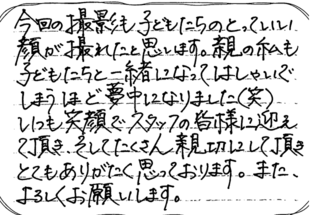 今回の撮影も子どもたちのとっていい
顔が撮れたと思います。親の私も
子どもたちと一緒になってはしゃいで
しまうほど夢中になりました(笑)
いつも笑顔でスタッフの皆様に迎え
て頂き、そしてたくさん親切にして頂き
とてもありがたく思っております。また、
よろしくお願いします。